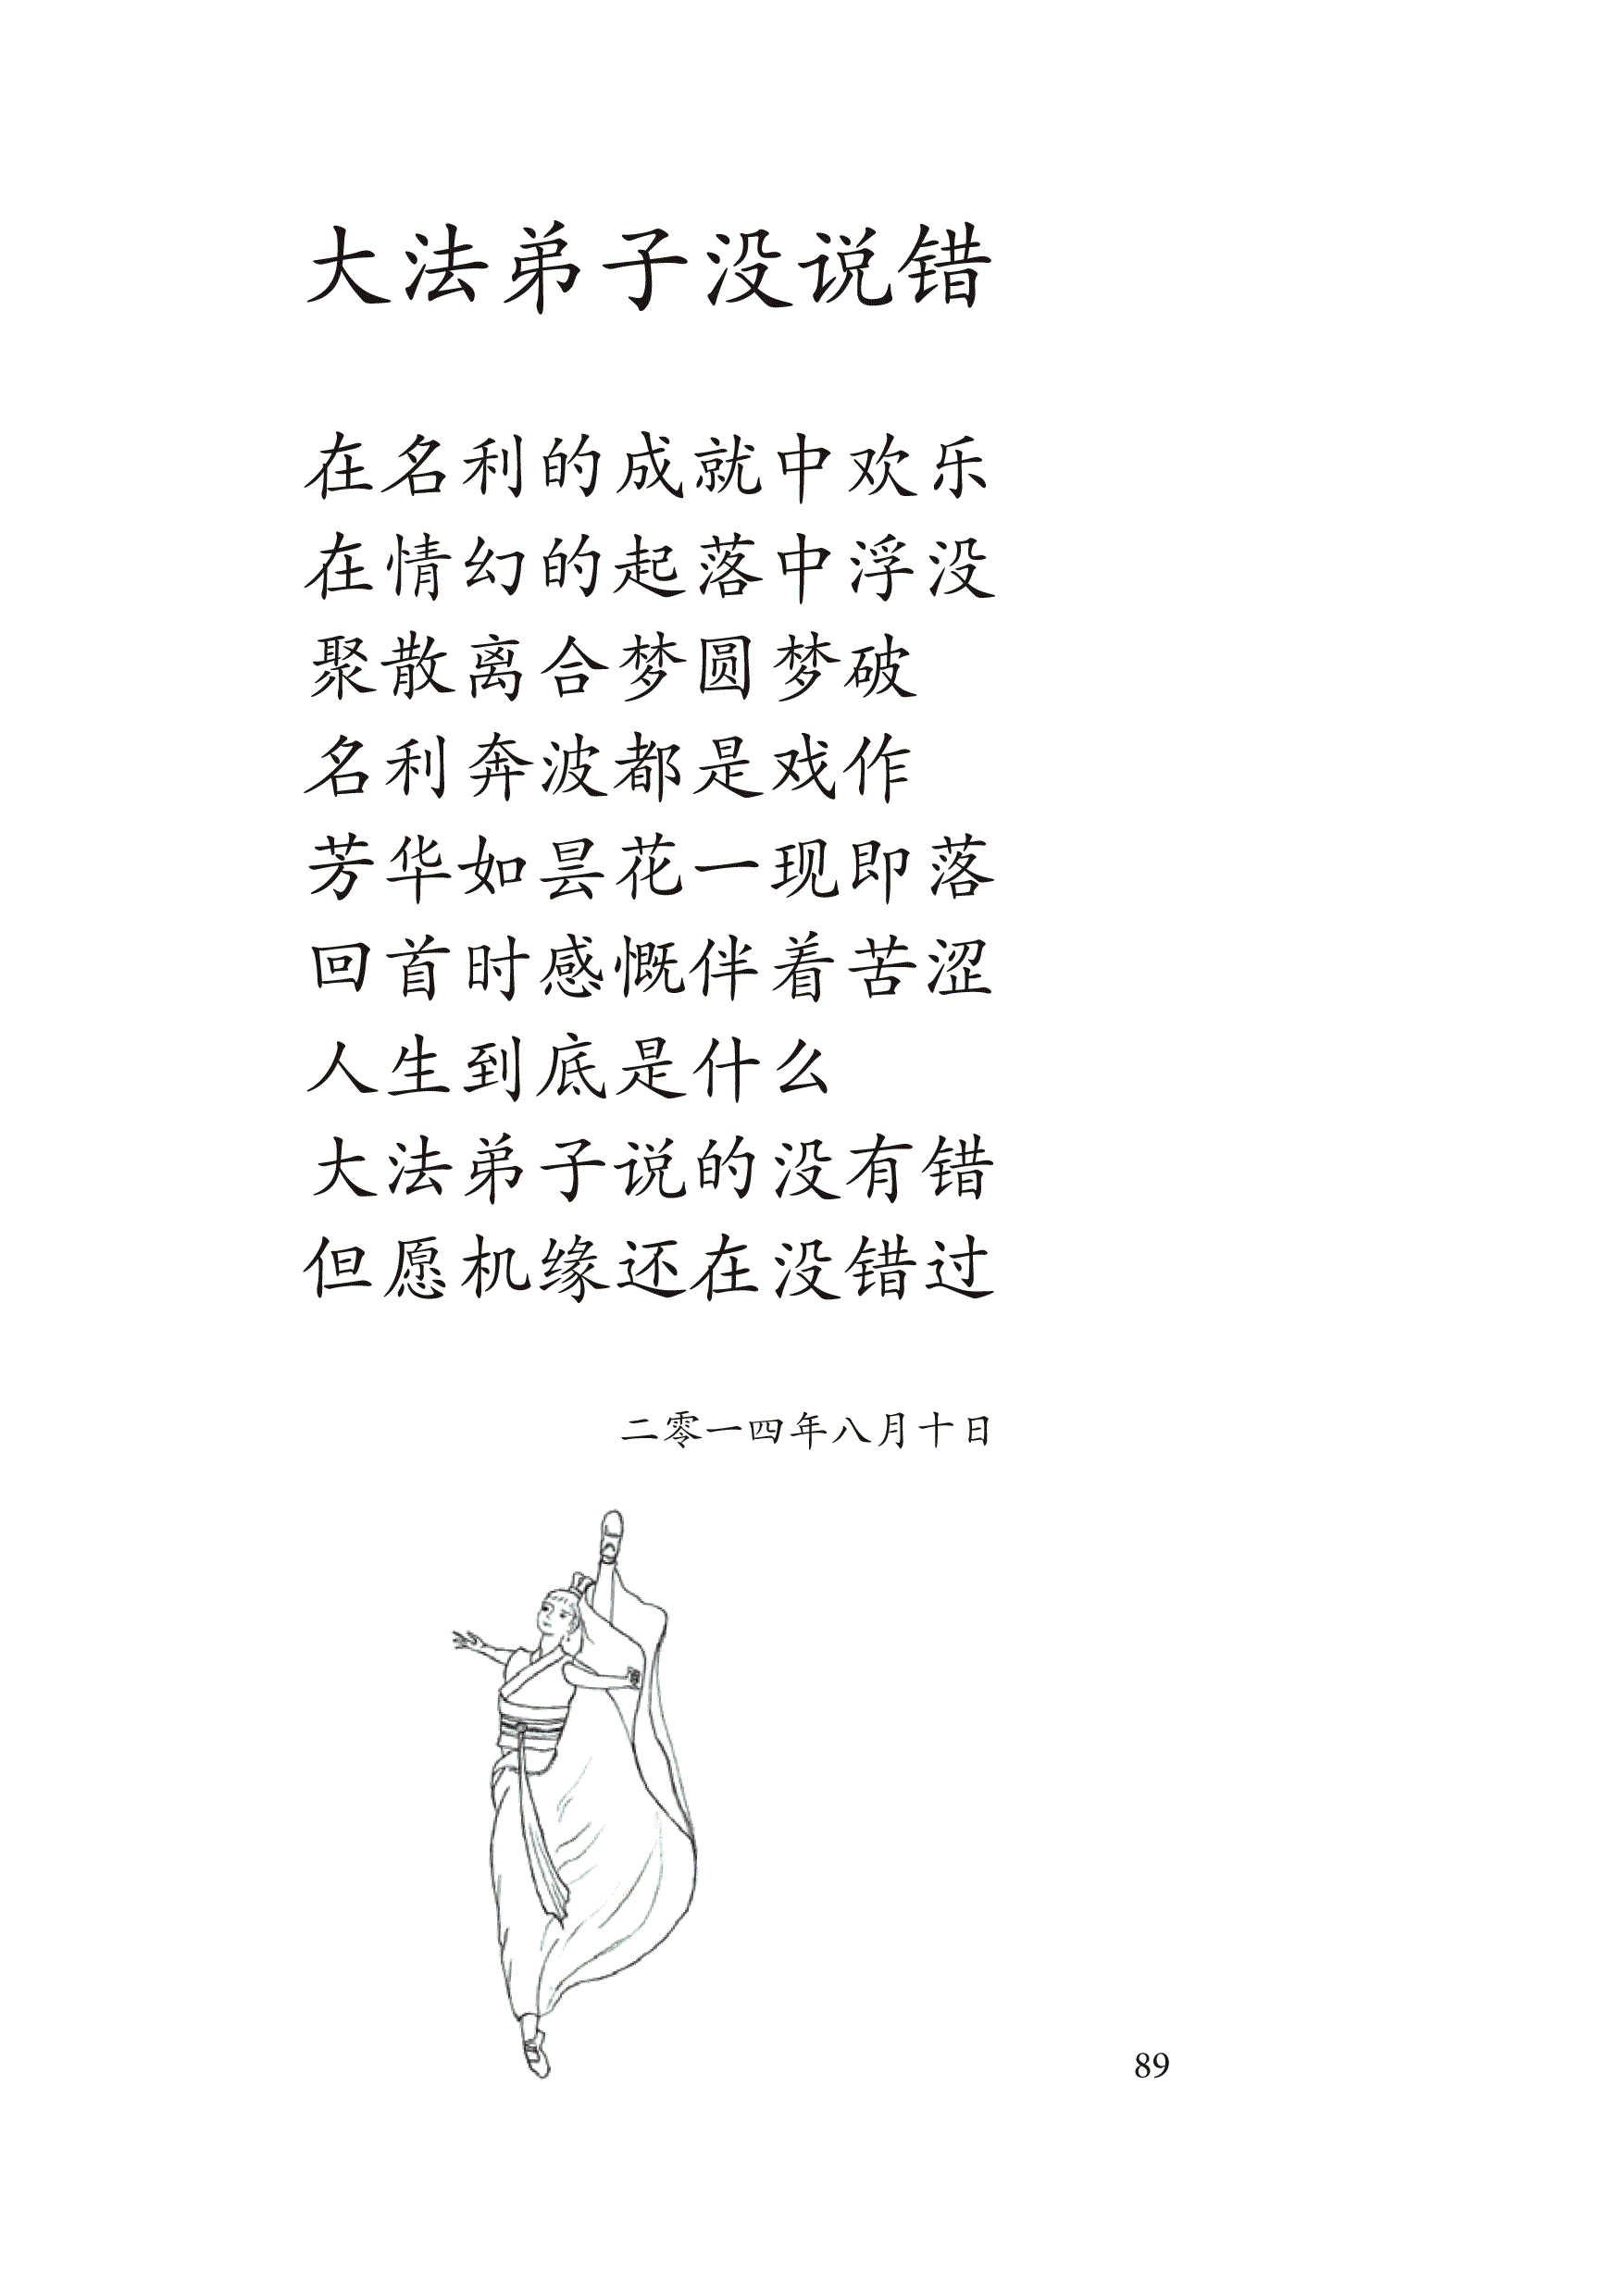 大法弟子没说错
在名利的成就中欢乐
在情幻的起落中浮没
聚散离合梦圆梦破
名利奔波都是戏作
芳华如昙花一现即落
回首时感慨伴着苦涩
人生到底是什么
大法弟子说的没有错
但愿机缘还在没错过
二零一四年八月十日
89